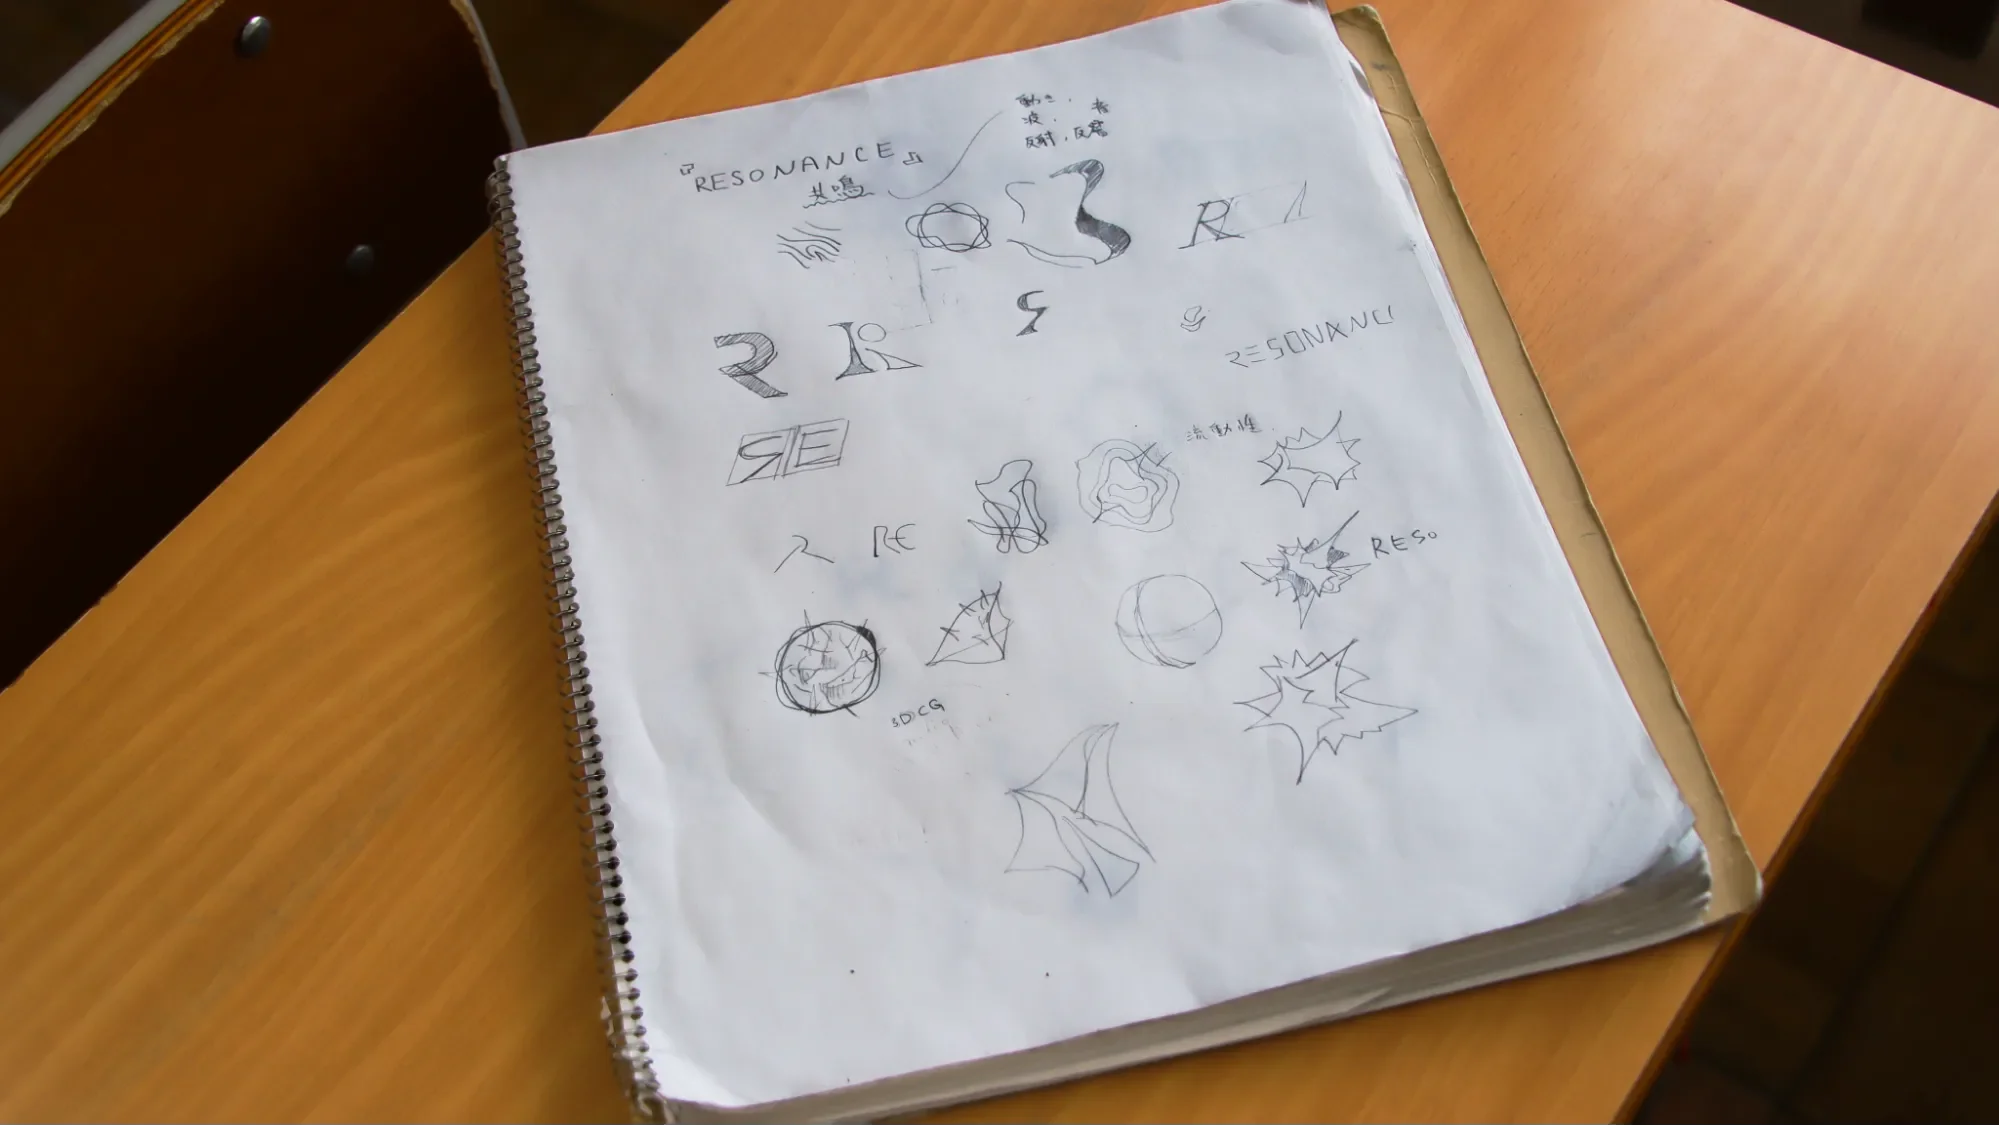 『RESONANCE』
共鳴
動き、
波、音
反射、反響
R
R
R
RESONANCE
RE
流動性
R
RE
RESO
3DCG